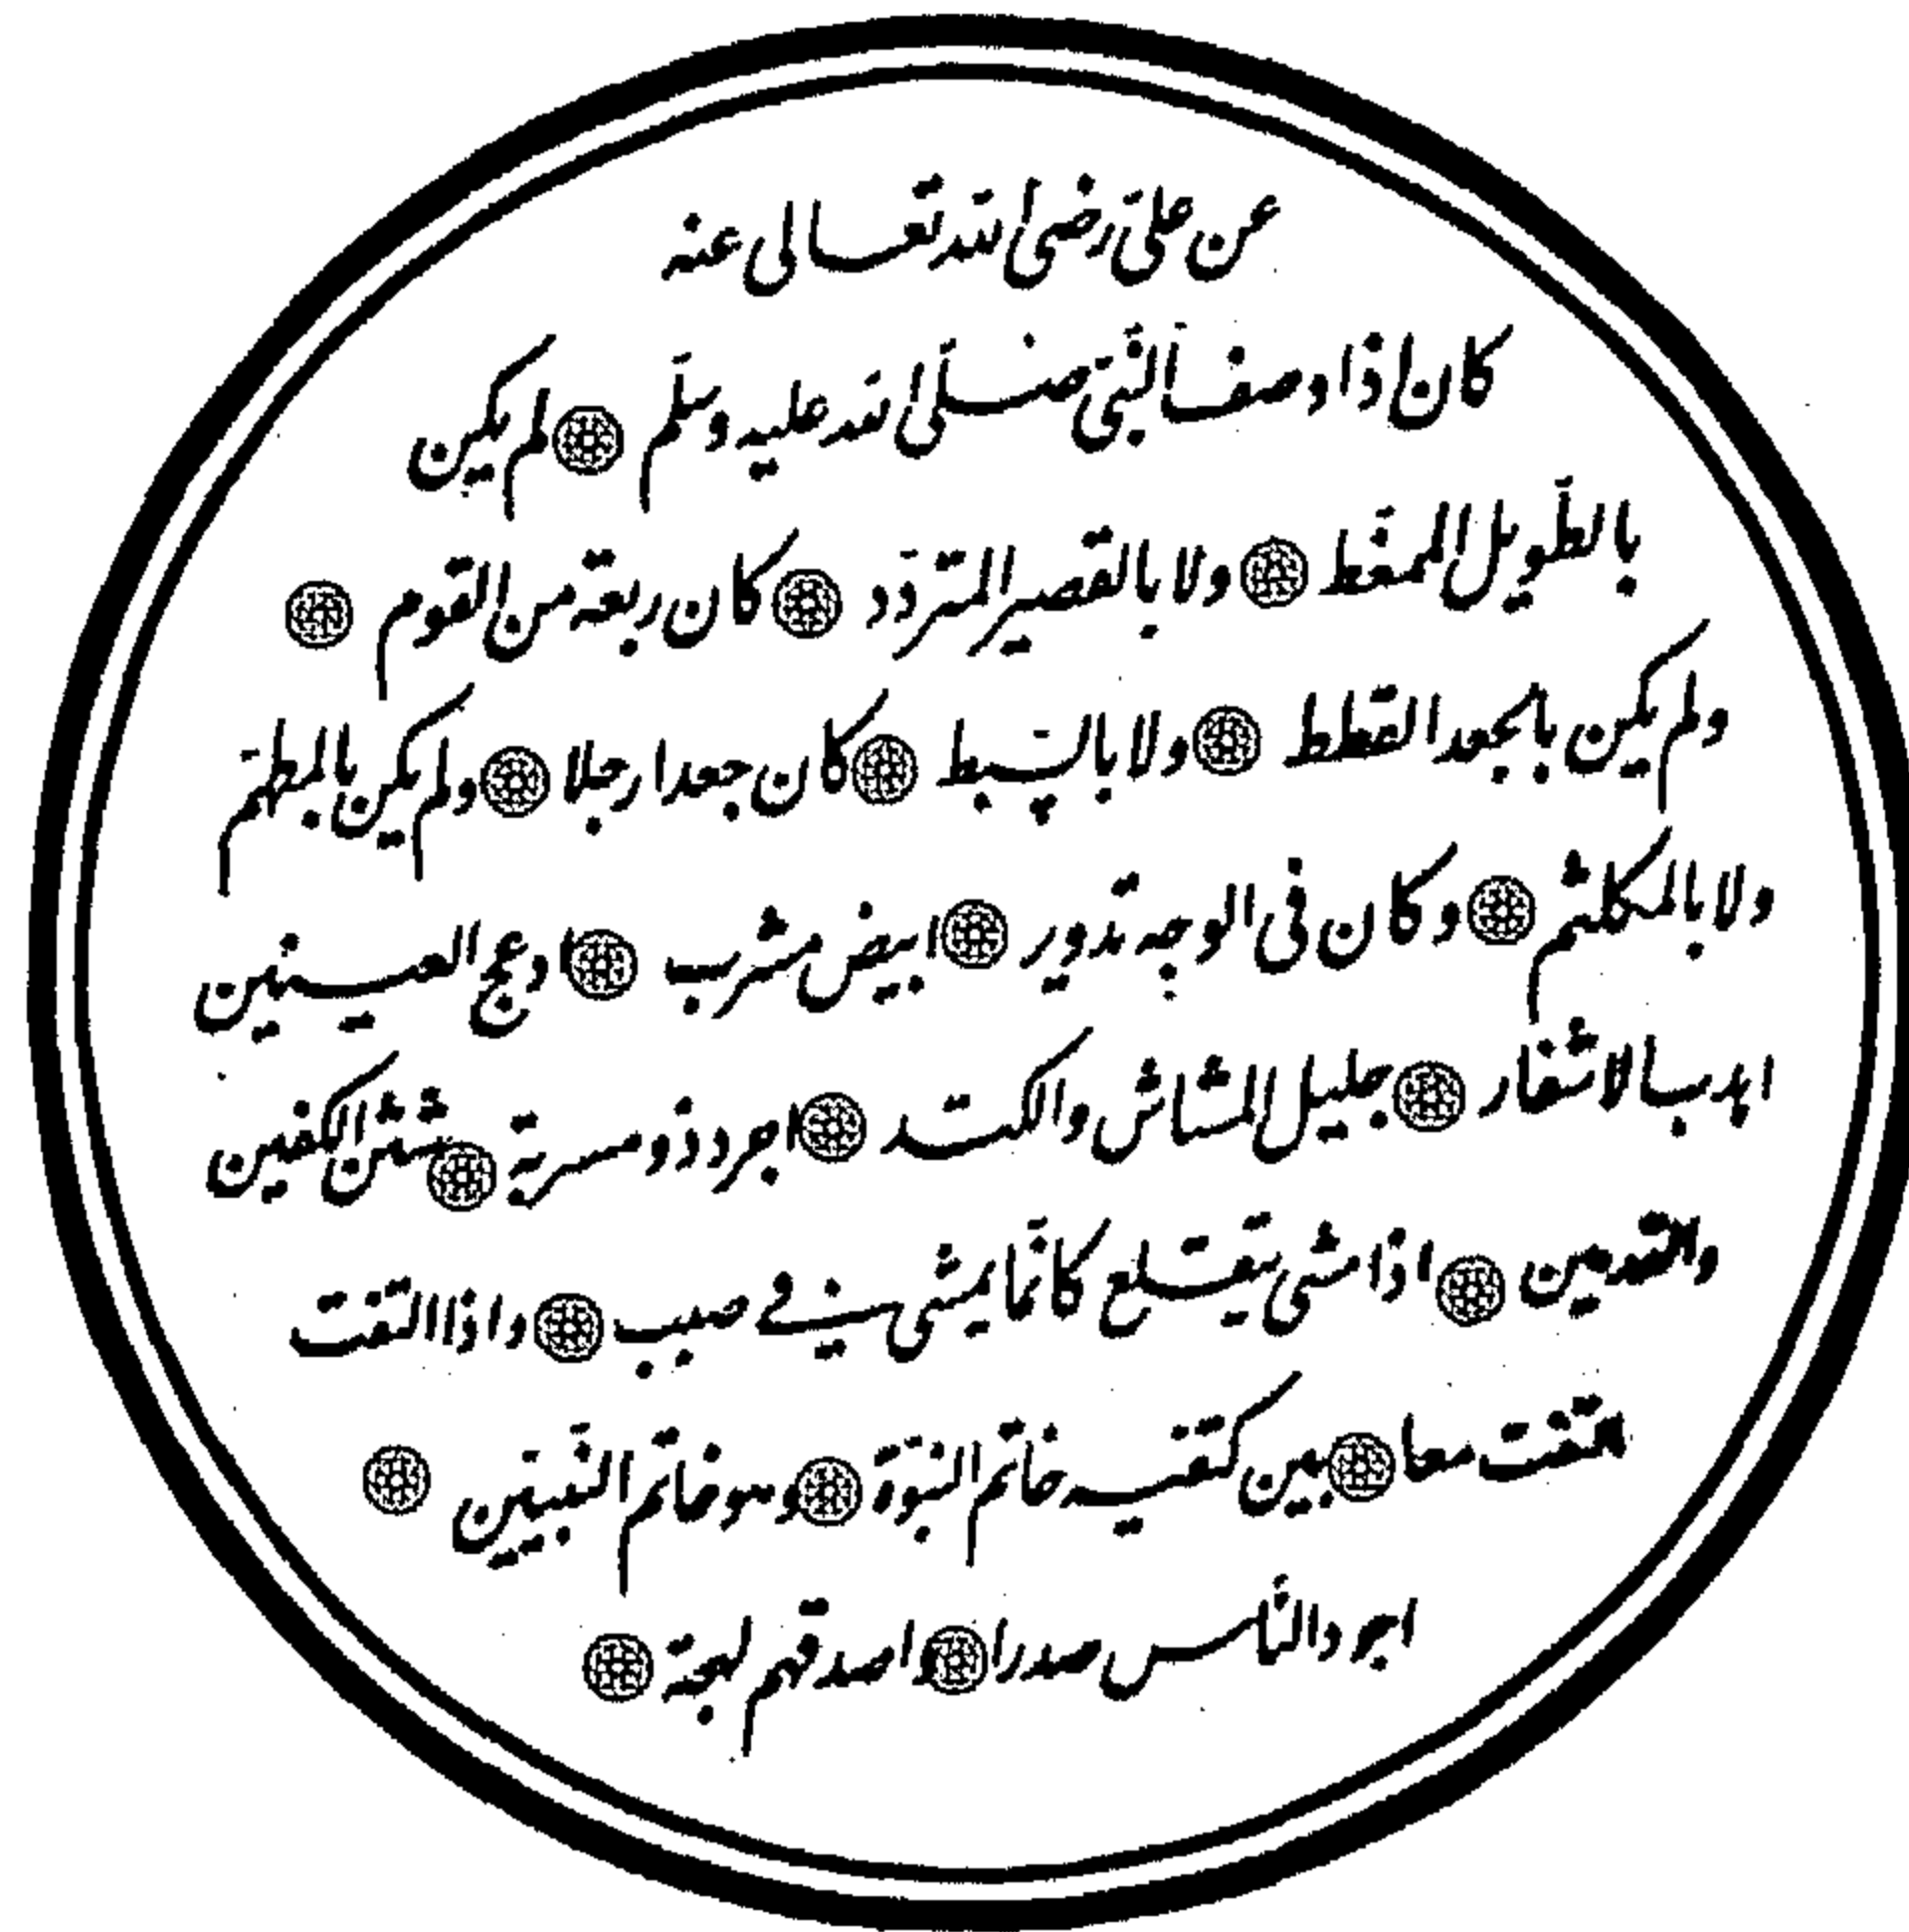 عن علیّ رضی الله تعالی عنه
کان اذا وصف النّبیّ صلّی الله علیه وسلّم لم یکن
بالطّویل الممّغط ولا بالقصیر المتردّد کان ربعة من القوم
ولم یکن بالجعد القطط ولا بالسّبط کان جعدا رجلا ولم یکن بالمطهّم
ولا بالمکلثم وکان فی الوجه تدویر ابیض مشرب ادعج العینین
اهدب الاشفار جلیل المشاش والکتد اجرد ذو مسربة شثن الکفین
والقدمین اذا مشی یتقلع کانّما یمشی فی صبب واذا التفت
التفت معا بین کتفیه خاتم النبوّة وهو خاتم النّبیّین
اجود النّاس صدرا واصدقهم لهجة